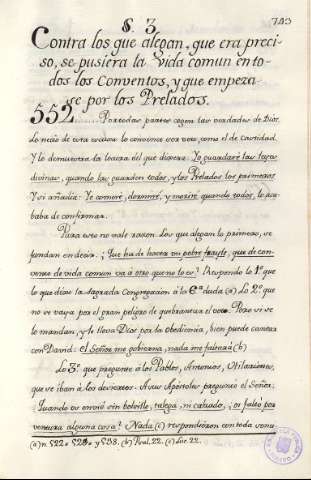 §. 3.
Contra los que alegan, que era preci-
so, se pusiera la Vida comun en to-
dos los Conventos, y que empeza-
se por los Prelados.
552. Por todas partes cogen las verdades de Dios.
Lo necio de esta excusa lo convence esa voz, como el de Castidad.
Y lo demuestra la locura del que dixera: Yo guardaré las leyes
divinas, quando las guarden todos, y los Prelados los primeros.
Y si añadia: Yo comeré, dormiré, y moriré quando todos, lo aca-
baba de confirmar.
Para esto no vale razon. Los que alegan lo primero, se
fundan en decir: ¿Que ha de hacer un pobre frayle, que de con-
vento de vida comun va a otro que no lo es? Respondo lo 1º que
lo que dixo la Sagrada Congregacion á la 6ª duda (a) Lo 2º que
no se vaya por el gran peligro de quebrantar el voto. Pero si se
lo mandan, y le lleva Dios por la obediencia, bien puede cantar
con David: El Señor me gobierna, nada me faltará (b)
Lo 3º que pregunte á los Pablos, Antonios, Hilariones,
que se iban á los desiertos. A sus Apóstoles preguntó el Señor:
Quando os envié sin bolsillo, talega, ni calzado, ¿os faltó por
ventura alguna cosa? Nada (c) respondieron con toda venu-
(a) n. 522. 528. y 538. (b) Psal. 22. (c) Luc. 22.